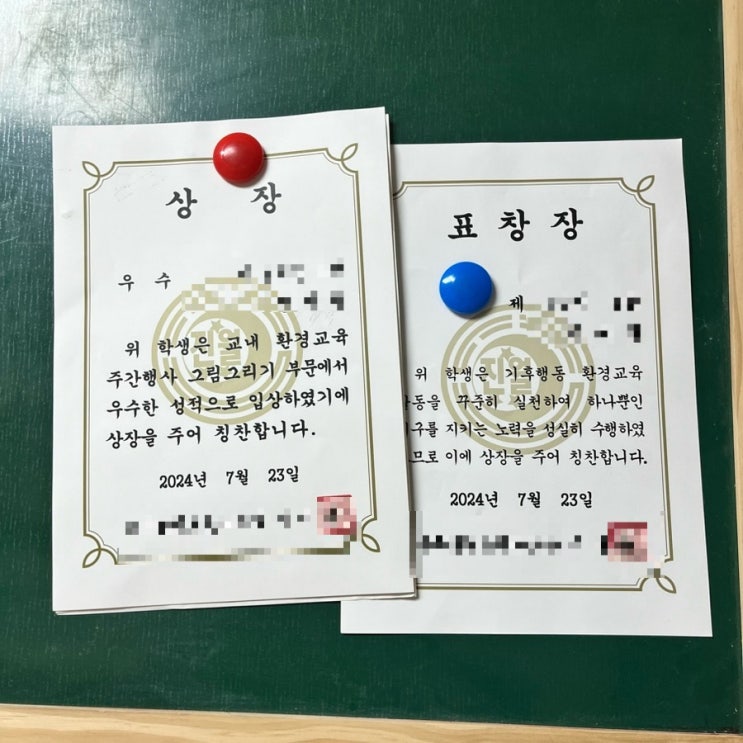 상 장
우 수
위 학생은 교내 환경교육
주간행사 그림그리기 부문에서
우수한 성적으로 입상하였기에
상장을 주어 칭찬합니다.
2024년 7월 23일
표 창 장
제
위 학생은 기후행동 환경교육
꾸준히 실천하여 하나뿐인
지키는 노력을 성실히 수행하였
이에 상장을 주어 칭찬합니다.
2024년 7월 23일